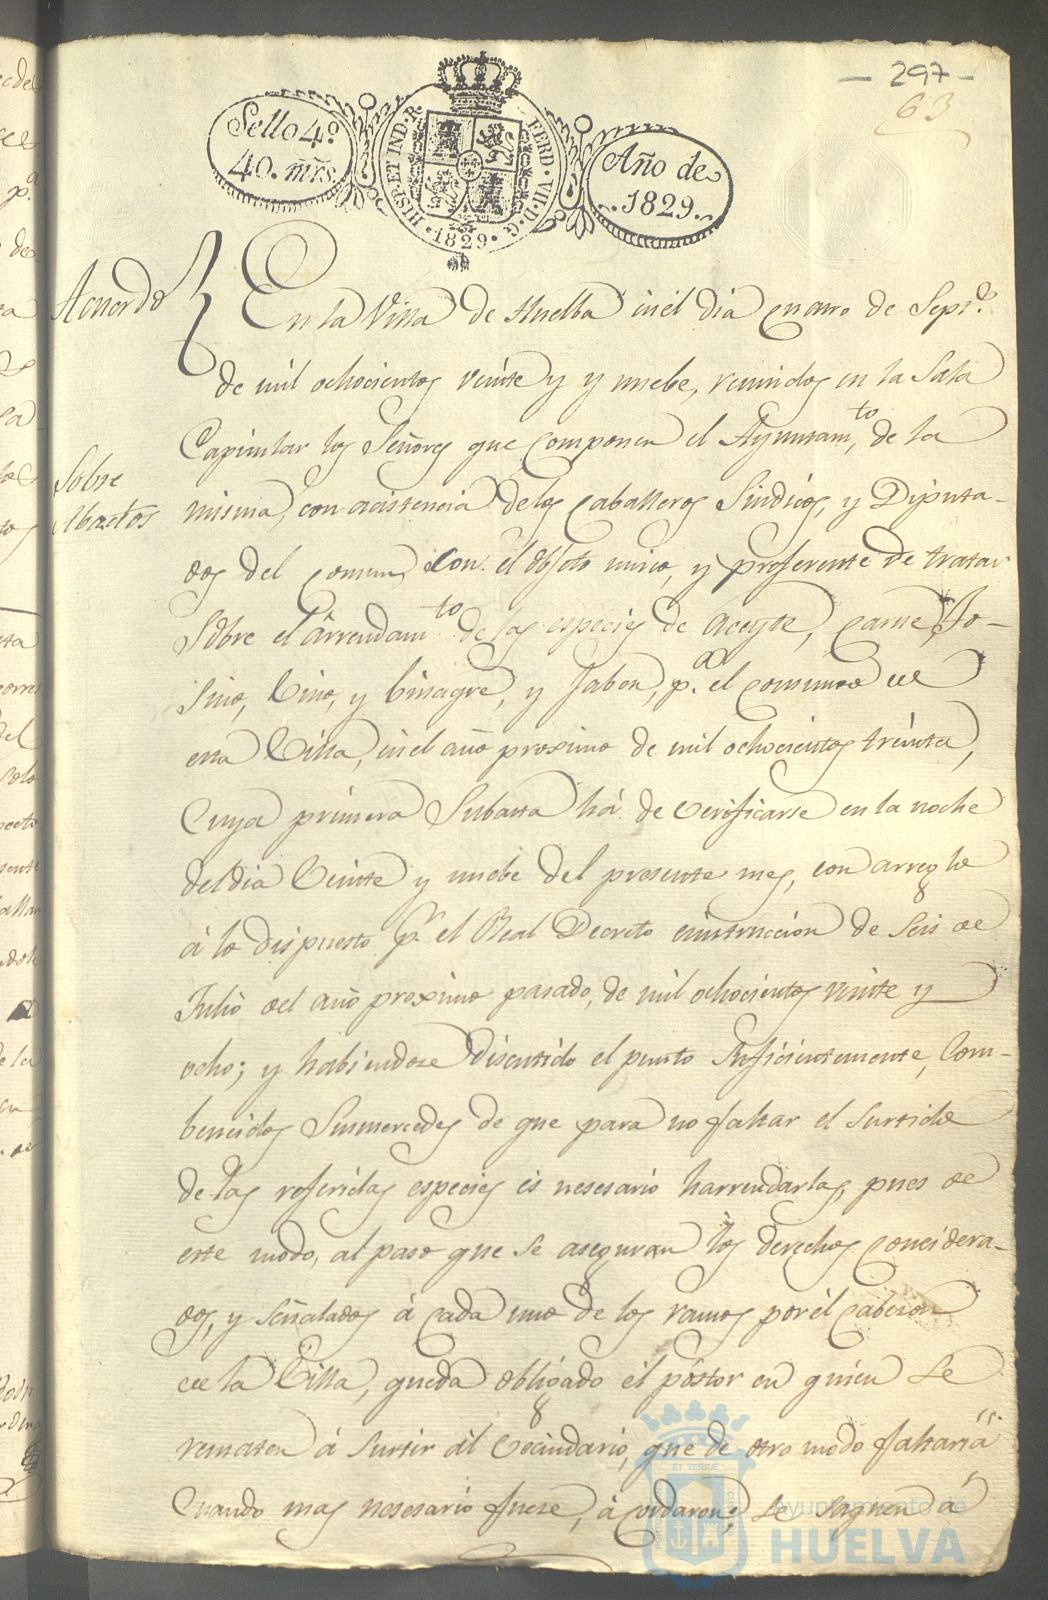 - 297 -
63
Sello 4º
40. mrs.
HISP. ET IND. R.
FERD. VII. D. G.
1829
Año de
1829.
Acuerdo
En la Villa de Huelba in el dia cuatro de Sepre.
de mil ochocientos veinte y y nuebe, reunidos en la Sala
Capitular los Señores que componen el Ayuntamto, de la
Sobre
Abastos
misma, con acistencia de los caballeros Sindicos, y Diputa-
dos del comun, con el objeto unico, y preferente de tratar
Sobre el Arrendamto de las especies de Aceyte, Carne, To-
sino, Vino, y binagre, y Jabon, pa. el consumo de
esta Villa, in el año proximo de mil ochocientos treinta,
Cuya primera Subasta há de Verificarse en la noche
del dia Veinte y nuebe del presente mes, con arreglo
á lo dispuesto pr. el Real Decreto einstruccion de Seis de
Julio del año proximo pasado, de mil ochocientos veinte y
ocho; y habiendose discutido el punto Suficientemente, Com-
bencidos Susmercedes de que para no faltar el surtido
de las referidas especies es nesesario harrendarlas, pues de
este modo, al paso que se aseguran los derechos concidera-
dos, y señalados á cada uno de los ramos por el Cabezon
de la Villa, queda obligado el póstor en quien se
rematen á surtir ál Vecindario, que de otro modo faltaria
Cuando mas nesesario fuese, á cordaron; se saquen á
ET TERRÆ
Ayuntamiento de
HUELVA